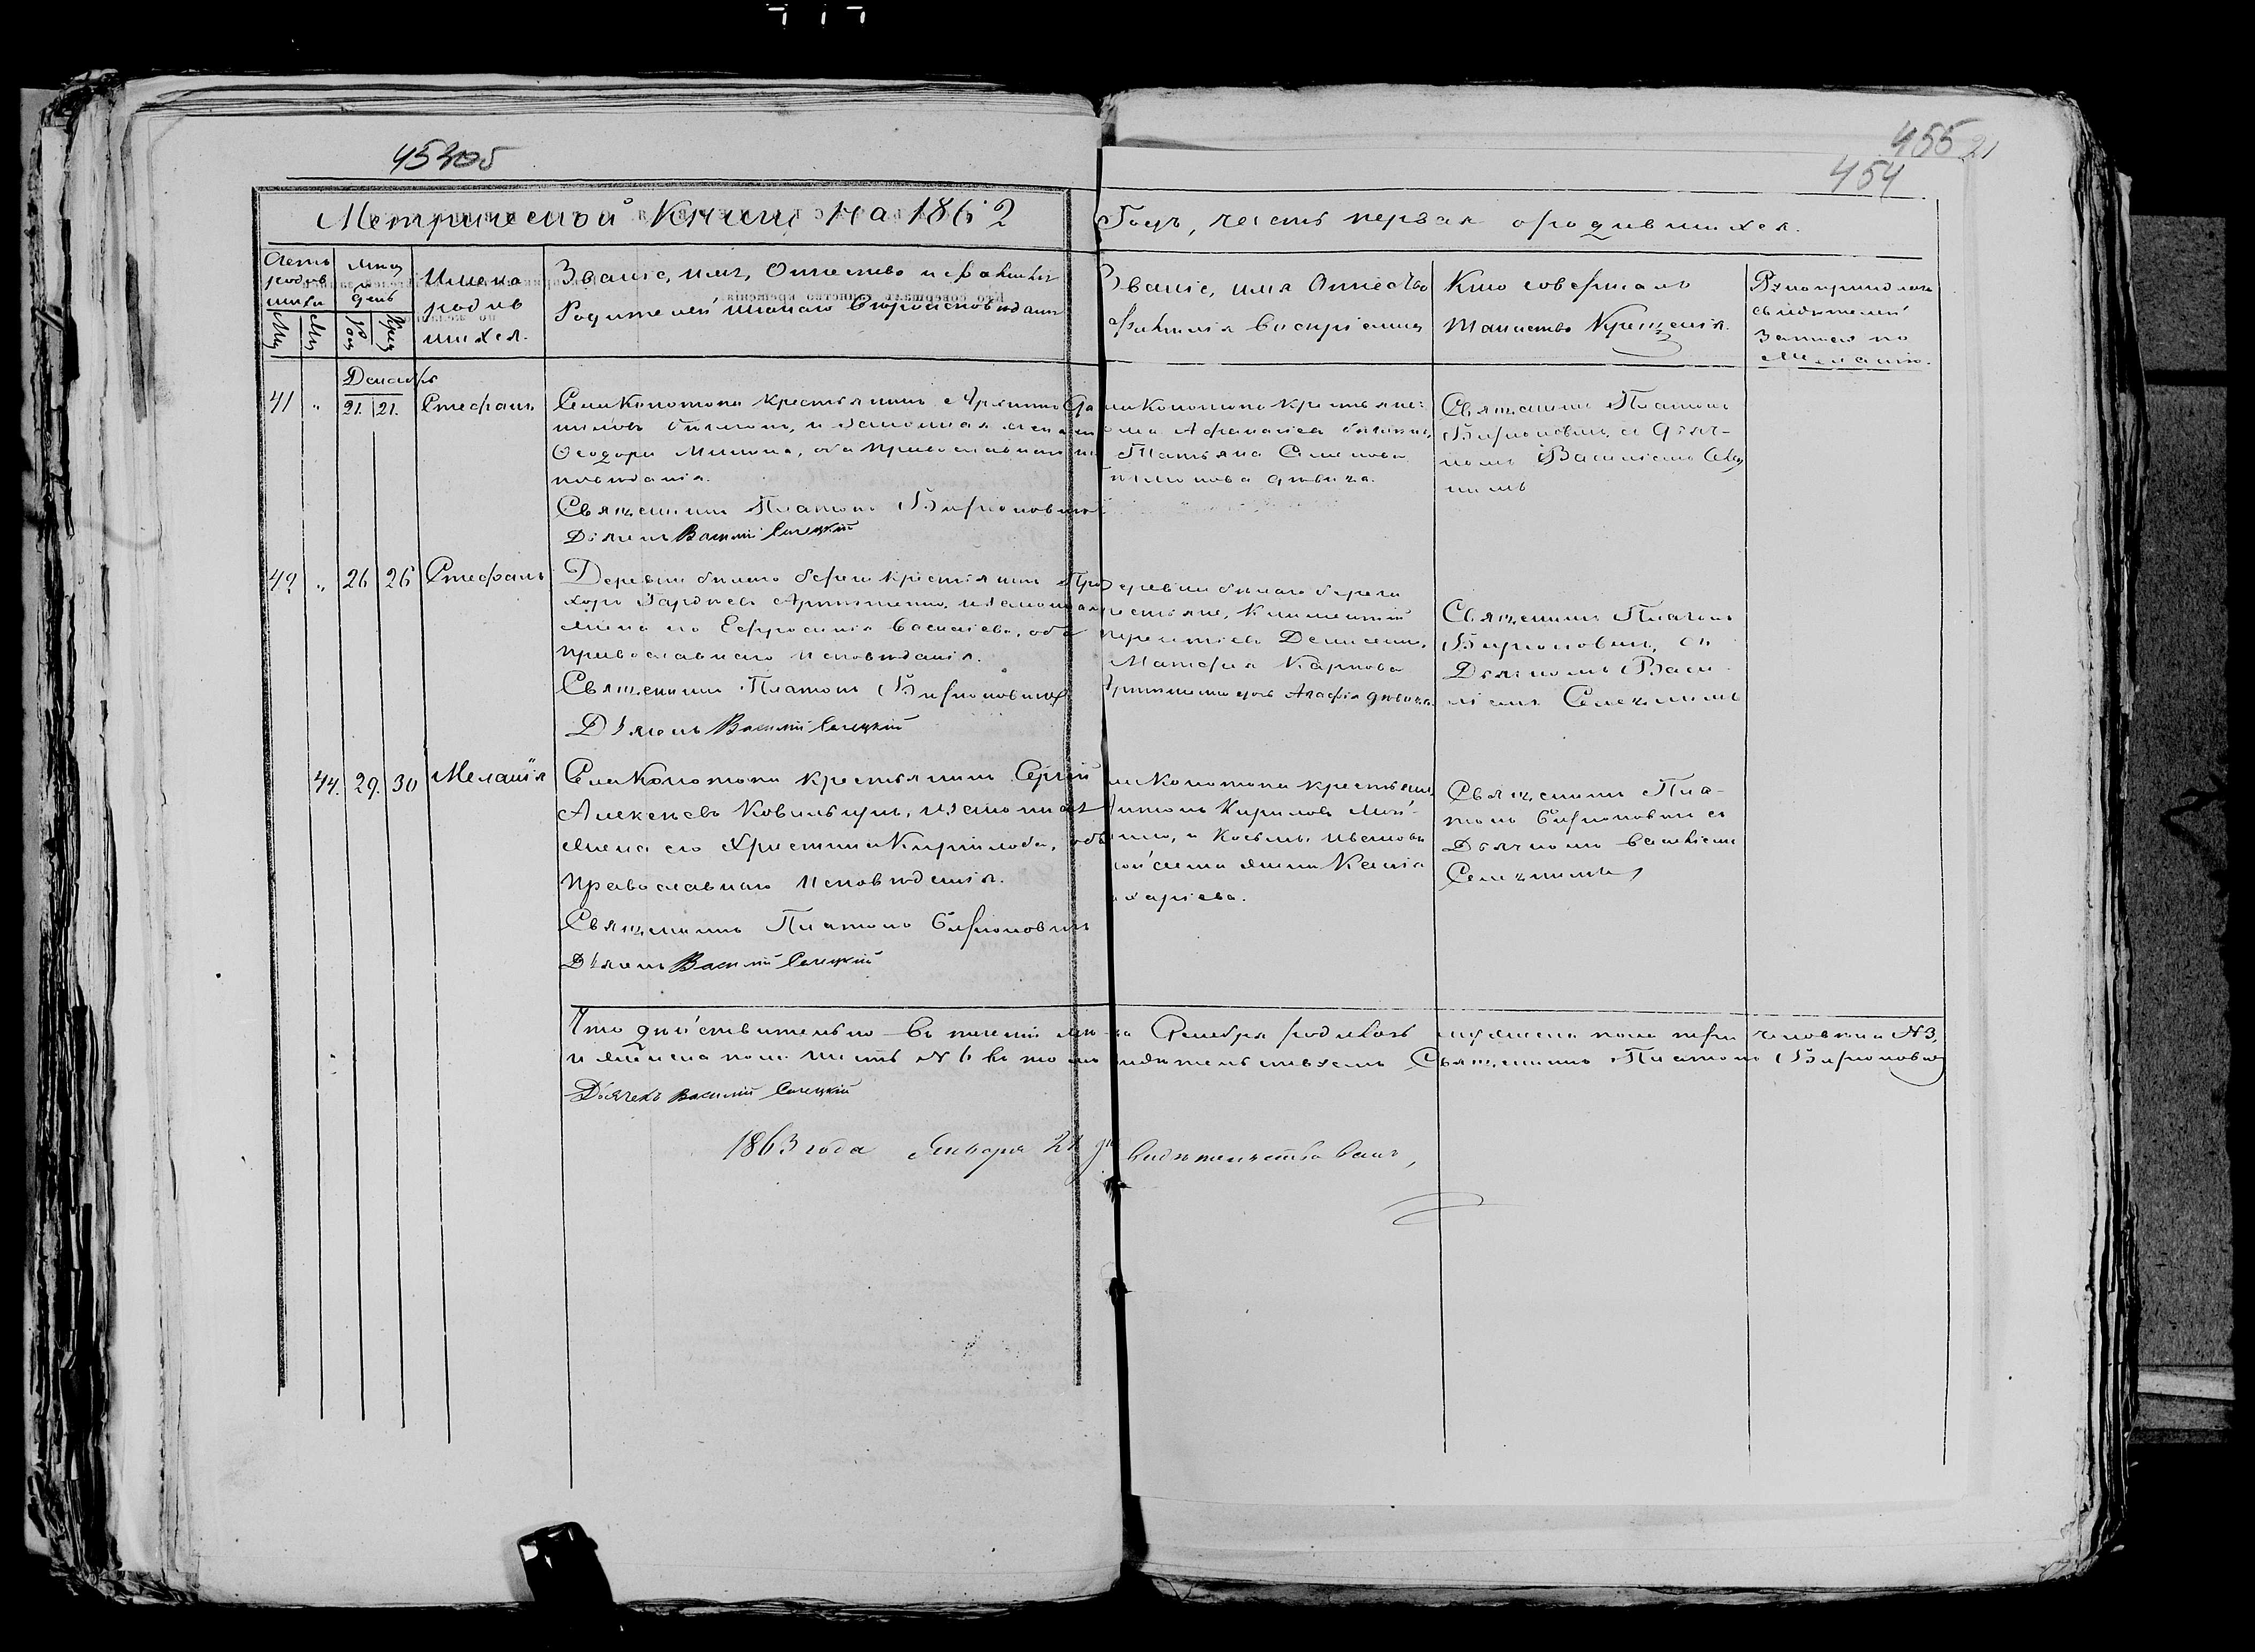 453об
455 21
454
Метрической Книги на 1862
Годъ, часть первая о родившихся.
Имена
родив
шихся.
Званіе, имя, Отчество и фамилія
Родителей и какого вѣроисповѣданія
Званіе, имя Отчество
Фамилія воспріемник
Кто совершалъ
Таинство Крещенія.
Рукоприкладств
свидѣтелей
записи по
желанію.
Декабрь
41 " 21. 21. Стефанъ
Села Конотопа крестьянинъ
и законная жена
Ѳеодора оба православнаго ис
повѣданія.
Священникъ Платонъ Бифроновичъ
Дьячекъ Василій Селецкій
Конотопа крестьяне:
Татьяна Семенова
дѣвица.
Священникъ Платонъ
Бифроновичъ, съ Дьяч-
комъ Василіемъ Селец
кимъ
42 " 26 26 Стефанъ
Деревни бѣлаго берега крестьянинъ Про
хоръ Гордѣевъ и законная
жена его Ефросинія Васильева, оба
православнаго исповѣданія.
Священникъ Платонъ Бифроновичъ
Дьячекъ Василій Селецкій
деревни бѣлаго берега
крестьяне, Климентій
Терентіевъ Денисенко,
Матфея Карпова
дочь Агафія дѣвица.
Священникъ Платонъ
Бифроновичъ, съ
Дьячкомъ Васи
ліемъ Селецкимъ
44. 29. 30 Меланія
Села Конотопа крестьянинъ Сергій
Алексѣевъ и законная
жена его Христина Кирилова, оба
православнаго исповѣденія.
Священникъ Платонъ Бифроновичъ
Дьячекъ Василій Селецкій
Конотопа крестьян.
Антонъ Кириловъ
и Косьмы Иванова
жена Ксенія
Захаріева.
Священникъ Пла-
тонъ Бифроновичъ съ
Дьячкомъ Василіемъ
Селецкимъ
Что дѣйствительно въ теченіи мѣ-ца Декабря родилось мужеска пола три человѣка №3,
и женска пола шесть №6 въ томъ свидѣтельствуемъ Священникъ Платонъ Бифроновичъ
Дьячекъ Василій Селецкій
1863 года Января 21 дн свидѣтельствовалъ,